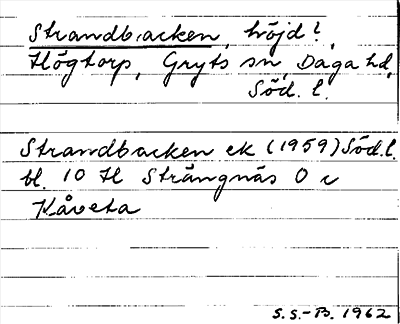 Strandbacken, höjd?,
Högtorp, Gryts sn, Daga hd,
Söd. l.
Strandbacken ek (1959) Söd. l.
bl. 10 H Strängnäs O c
Kåveta
S. S.-B. 1962